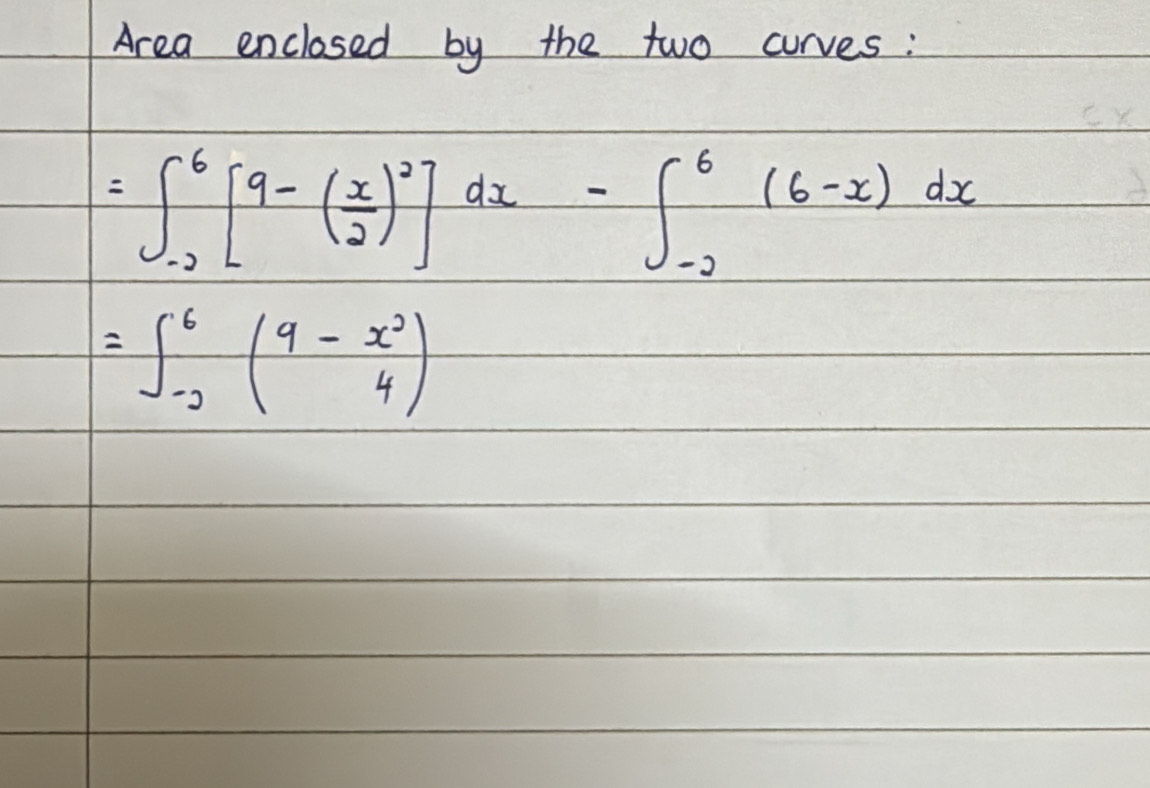 Area enclosed by the two curves :
= ∫₋₂⁶ [9 - (x/2)²] dx - ∫₋₂⁶ (6 - x) dx
= ∫₋₂⁶ (9 - x² 4)